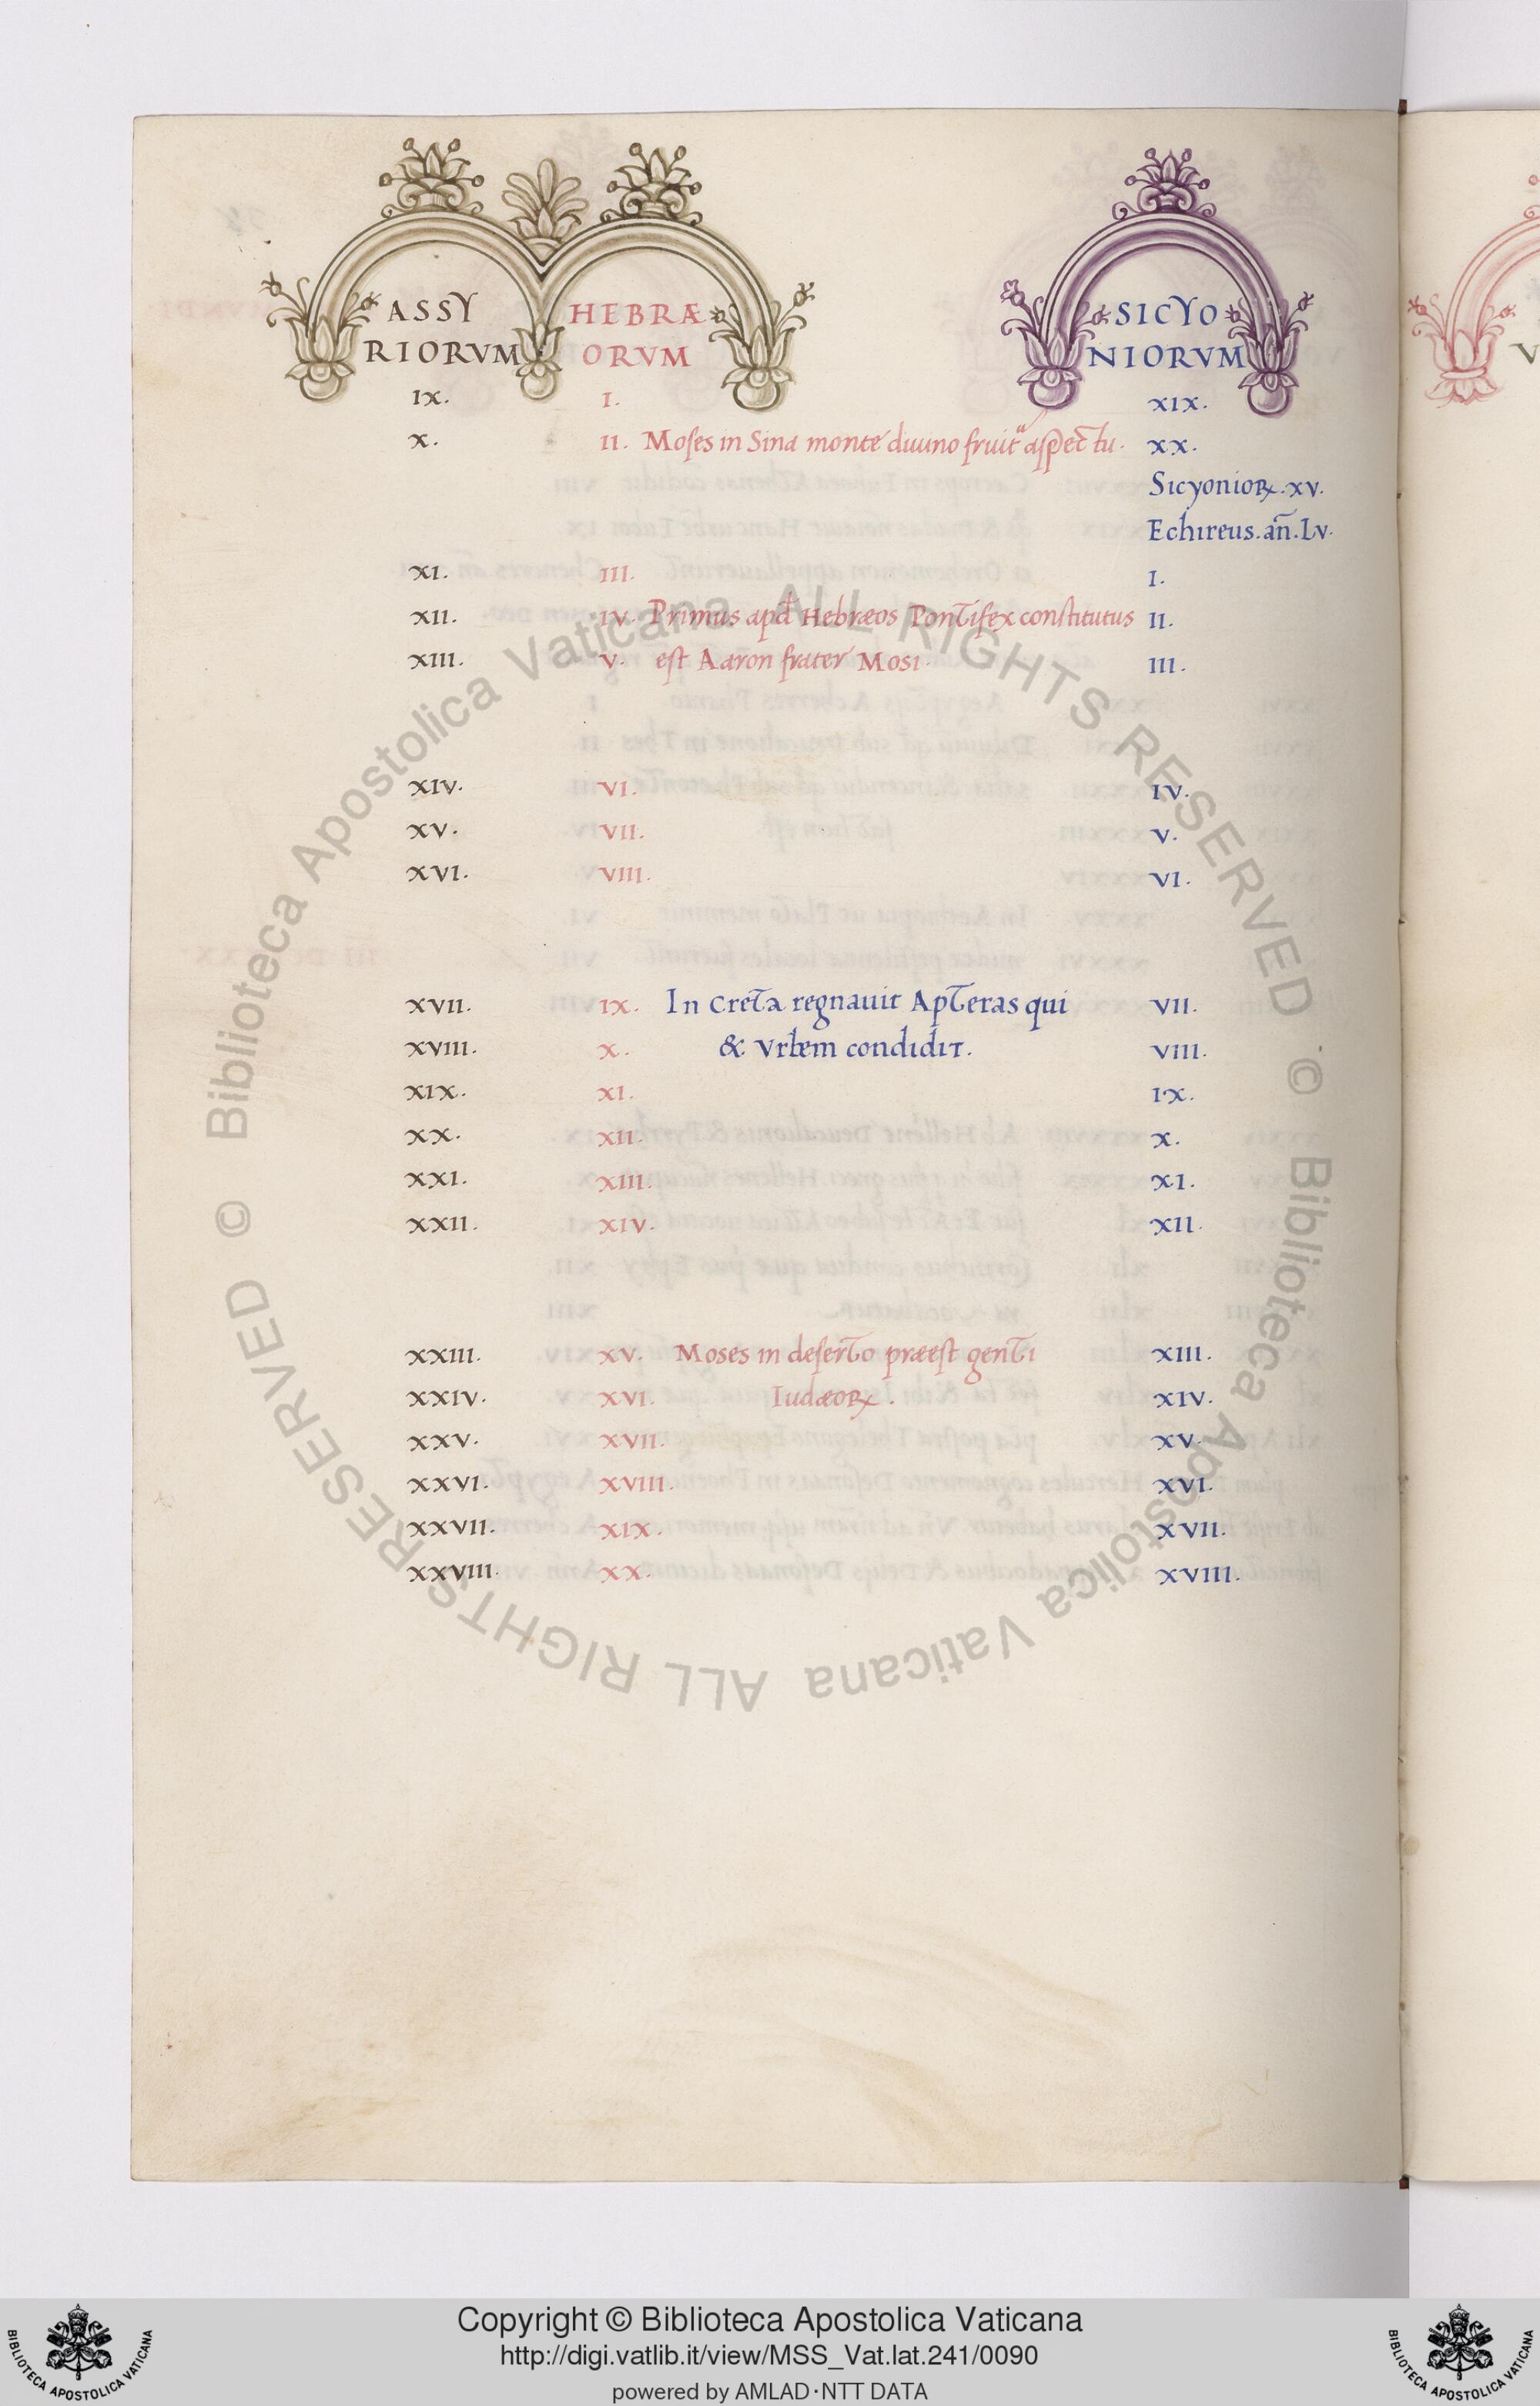 ASSY HEBRÆ SICYO
RIORVM ORVM NIORVM
IX. I. XIX.
X. II. Moses in Sina monte diuino fruit᷑ aspectu. XX.
Sicyonioꝝ. XV.
Echireus. an̄. Lv.
XI. III. I.
XII. IV. Primus apd̄ Hebræos Pontifex constitutus II.
XIII. V. est Aaron frater Mosi. III.
XIV. VI. IV.
XV. VII. V.
XVI. VIII. VI.
XVII. IX. In Creta regnauit Apteras qui VII.
XVIII. X. & Vrbem condidit. VIII.
XIX. XI. IX.
XX. XII. X.
XXI. XIII. XI.
XXII. XIV. XII.
XXIII. XV. Moses in deserto præest genti XIII.
XXIV. XVI. Iudæoꝝ. XIV.
XXV. XVII. XV.
XXVI. XVIII. XVI.
XXVII. XIX. XVII.
XXVIII. XX. XVIII.
© Biblioteca Apostolica Vaticana ALL RIGHTS RESERVED
© Biblioteca Apostolica Vaticana ALL RIGHTS RESERVED
Copyright © Biblioteca Apostolica Vaticana
http://digi.vatlib.it/view/MSS_Vat.lat.241/0090
powered by AMLAD·NTT DATA
BIBLIOTECA APOSTOLICA VATICANA
BIBLIOTECA APOSTOLICA VATICANA